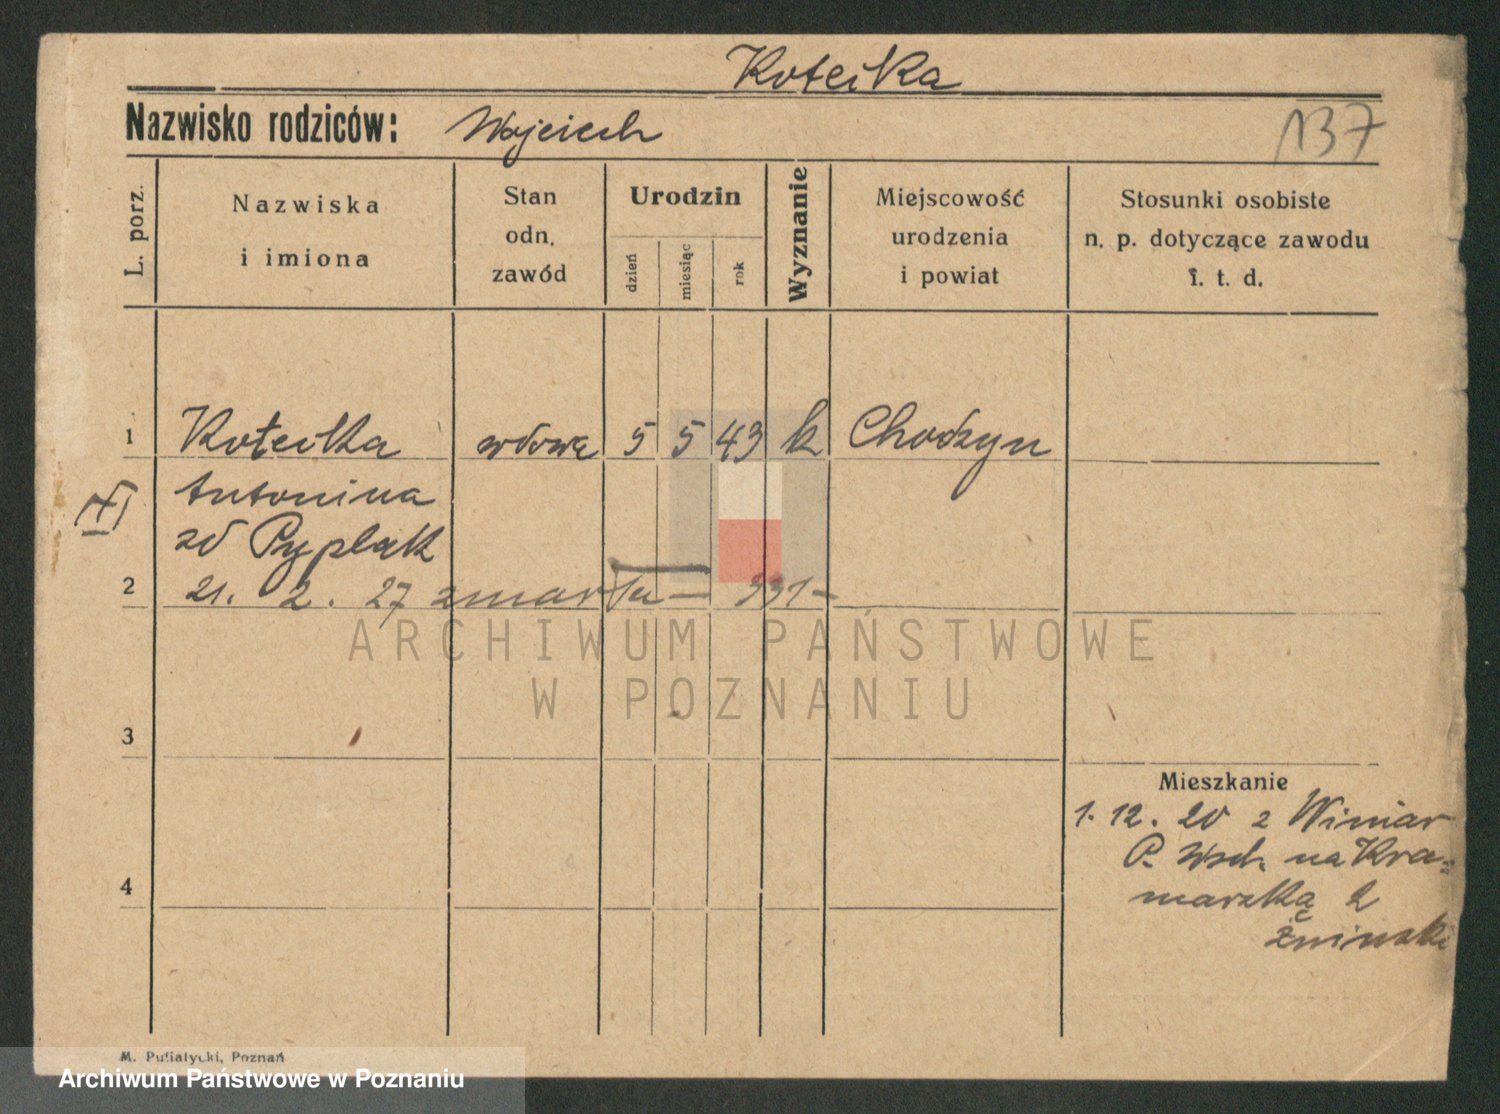 Koteika
Nazwisko rodziców: Wojciech 137
L. porz.
Nazwiska
i imiona
Stan
odn.
zawód
Urodzin
dzień
miesiąc
rok
Wyznanie
Miejscowość
urodzenia
i powiat
Stosunki osobiste
n. p. dotyczące zawodu
i. t. d.
1 Koteika wdowa 5 5 43 k Chodzyn
Antonina
zd Pyplak
2 21. 2. 27 zmarła — 331 –
3
Mieszkanie
1. 12. 20 z Winiar
P. Wsch. na Kra-
4 marzką 2
Żninski
M. Putiatycki, Poznań
ARCHIWUM PAŃSTWOWE
W POZNANIU
Archiwum Państwowe w Poznaniu